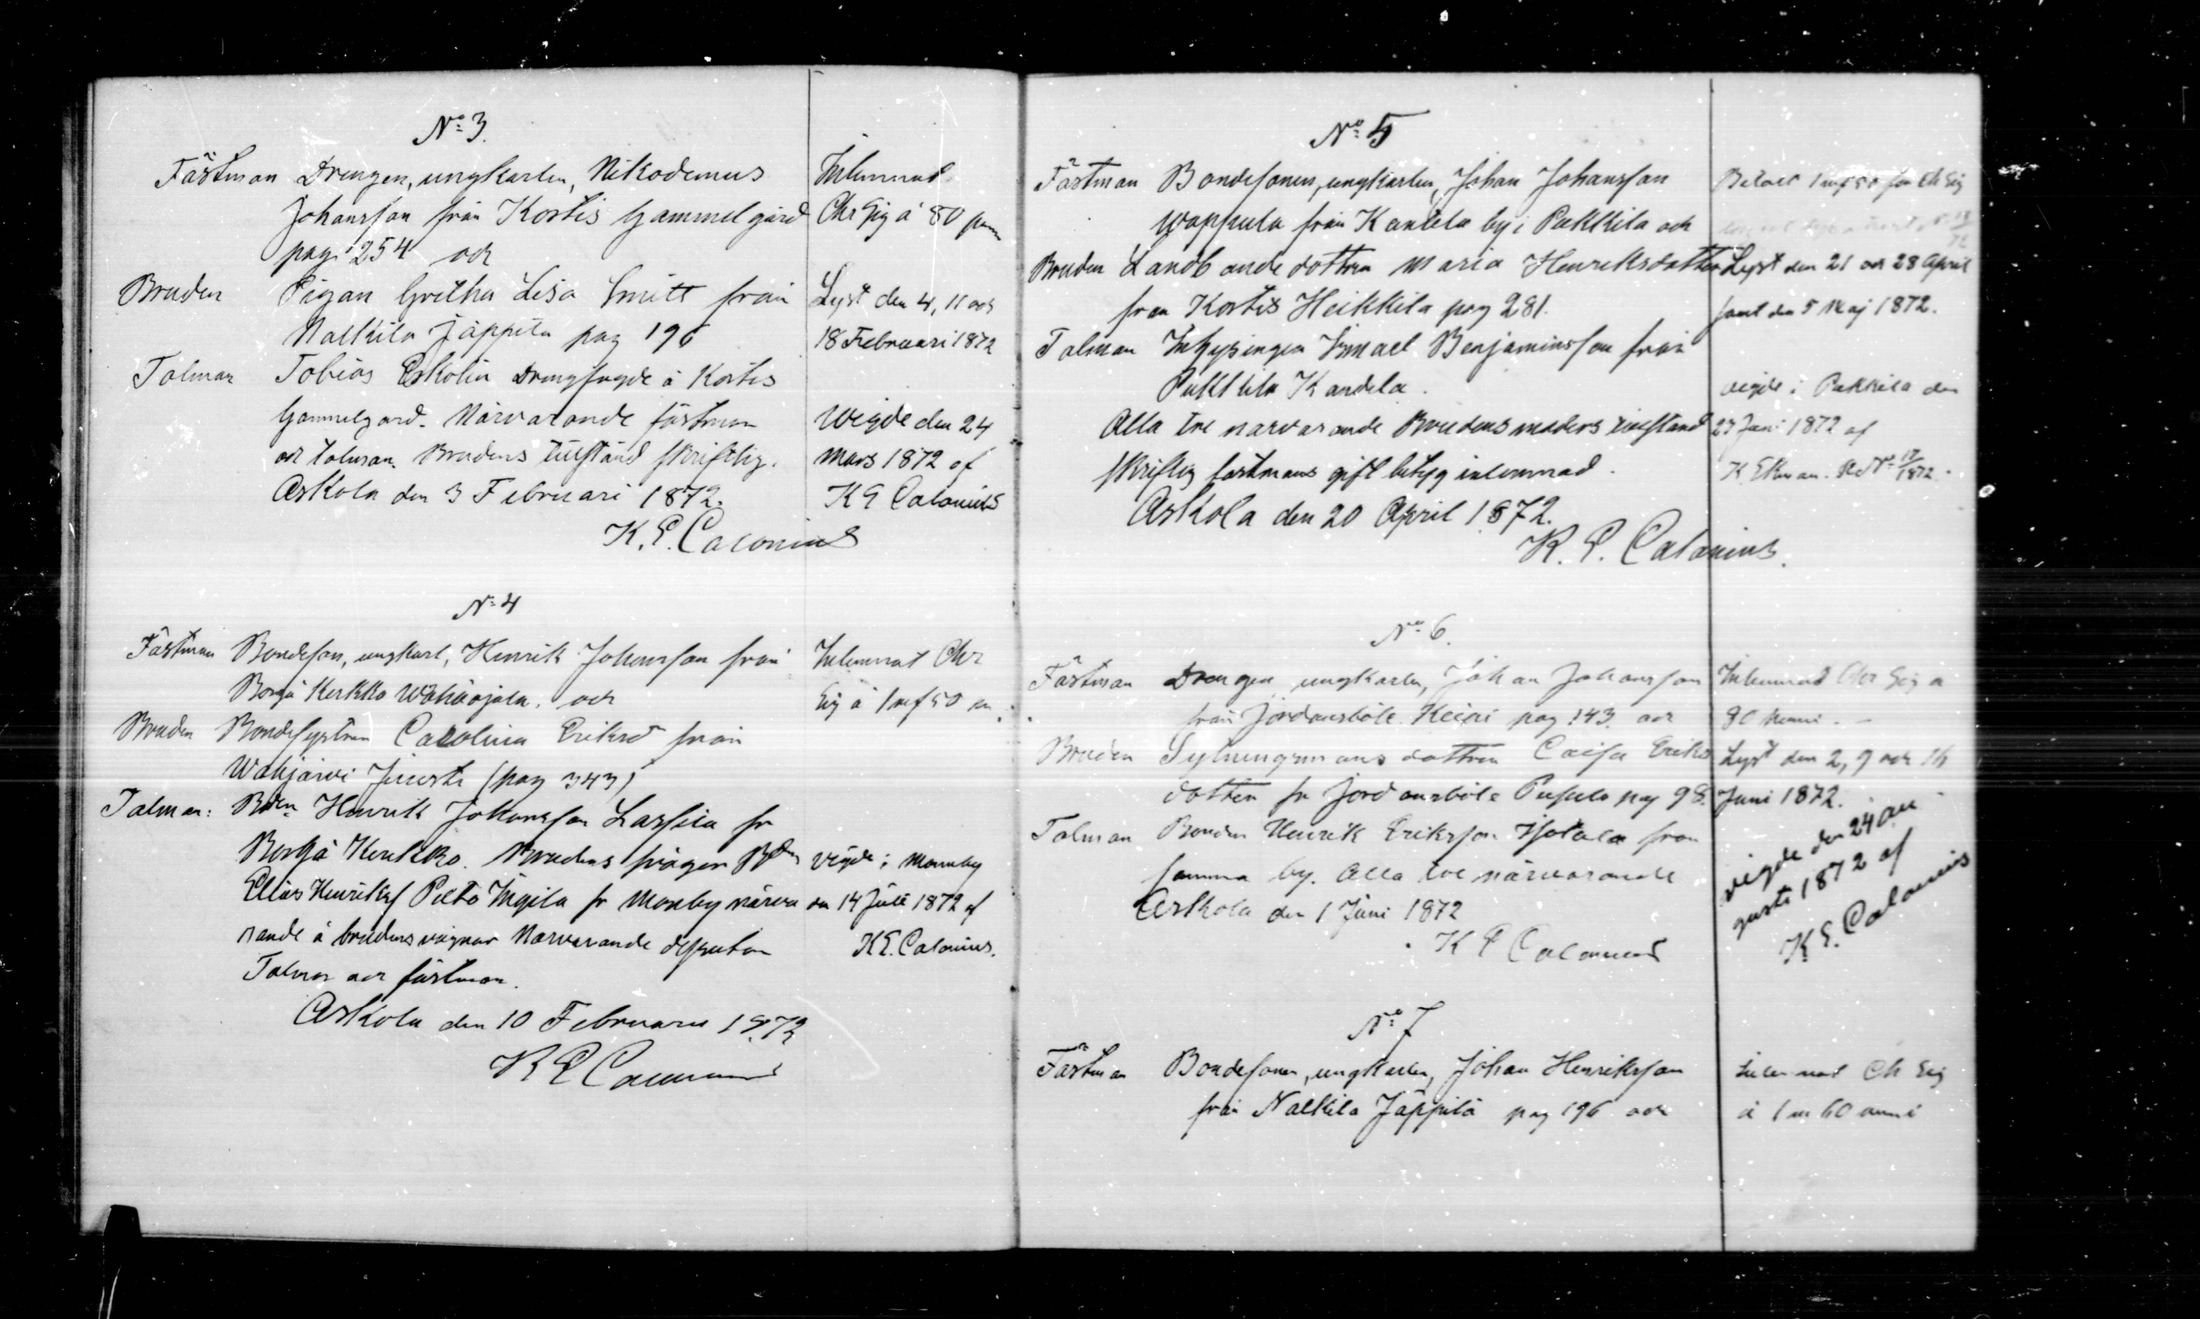 No 3.
Fästman Drengen, ungkarlen, Nikodemus
Johansson från Kortis Gammelgård
pag 254 och
Bruden Pigan Gretha Lisa Smitt från
Nalkila Jäppilä pag 196
Talman Tobias Eskolin Drengfogde å Kortis
Gammelgard. Närvarande fästman
och talman. Brudens tillstånd skriftlig.
Askola den 3 Februari 1872.
K. E. Calonius
Inlemnat
Chr Sig á 80 penni
Lyst den 4, 11 och
18 Februari 1872
Wigde den 24
Mars 1872 af
K E Calonius
No 4
Fästman Bondeson, ungkarl, Henrik Johansson från
Borgå Kerkko Wähäojala. och
Bruden Bondesystren Carolina Eriksd från
Wahjärvi Juusti (pag 343)
Talman: Bden Henrik Johansson Lassila fr
Borgå Kerkko. Brudens svåger Bden
Elias Henriksf Pelto Ingila fr Monby närva
rande å brudens vägnar Närvarande dessutom
Talman och fästman.
Askola den 10 Februari 1872
K E Calonius
Inlemnat Chr
Sig á 1 mf 50 pn.
vigde i Monby
den 14 Juli 1872 af
K E. Calonius.
No 5
Fästman Bondesonen, ungkarlen, Johan Johansson
Wappula från Kantela by i Pukkila och
Bruden Landbondedottren Maria Henriksdotter
från Kortis Heikkilä pag 281.
Talman Inhysingen Ismael Benjaminsson från
Pukkila Kandela.
Alla tre närvarande Brudens moders tillstånd
skriftlig fästmans gift betyg inlemnad.
Askola den 20 April 1872.
K. E. Calonius.
Betalt 1 mf 50 för Ch Sig
Lyst den 21 och 28 April
samt den 5 Maj 1872.
vigde i Pukkila den
23 Juni 1872 af
K. Ekman. No 17/1872.
No 6.
Fästman Drengen, ungkarlen, Johan Johansson
från Jordansböle Keiai pag 143 och
Bruden Sytningsmans dottren Caisa Eriks
dotter fr Jordansböle Pupula pag 98.
Talman Bonden Henrik Eriksson Isotalo från
samma by. Alla tre närvarande
Askola den 1 Juni 1872
K E Calonius
Inlemnad Chr Sig a
80 penni. -
Lyst den 2, 9 och 16
Juni 1872.
vigde den 24 Au
gusti 1872 af
K. E. Calonius
No 7
Fästman Bondesonen, ungkarlen, Johan Henriksson
från Nalkila Jäppilä pag 196 och
Inlemnat Ch Sig
á 1 m 60 penni